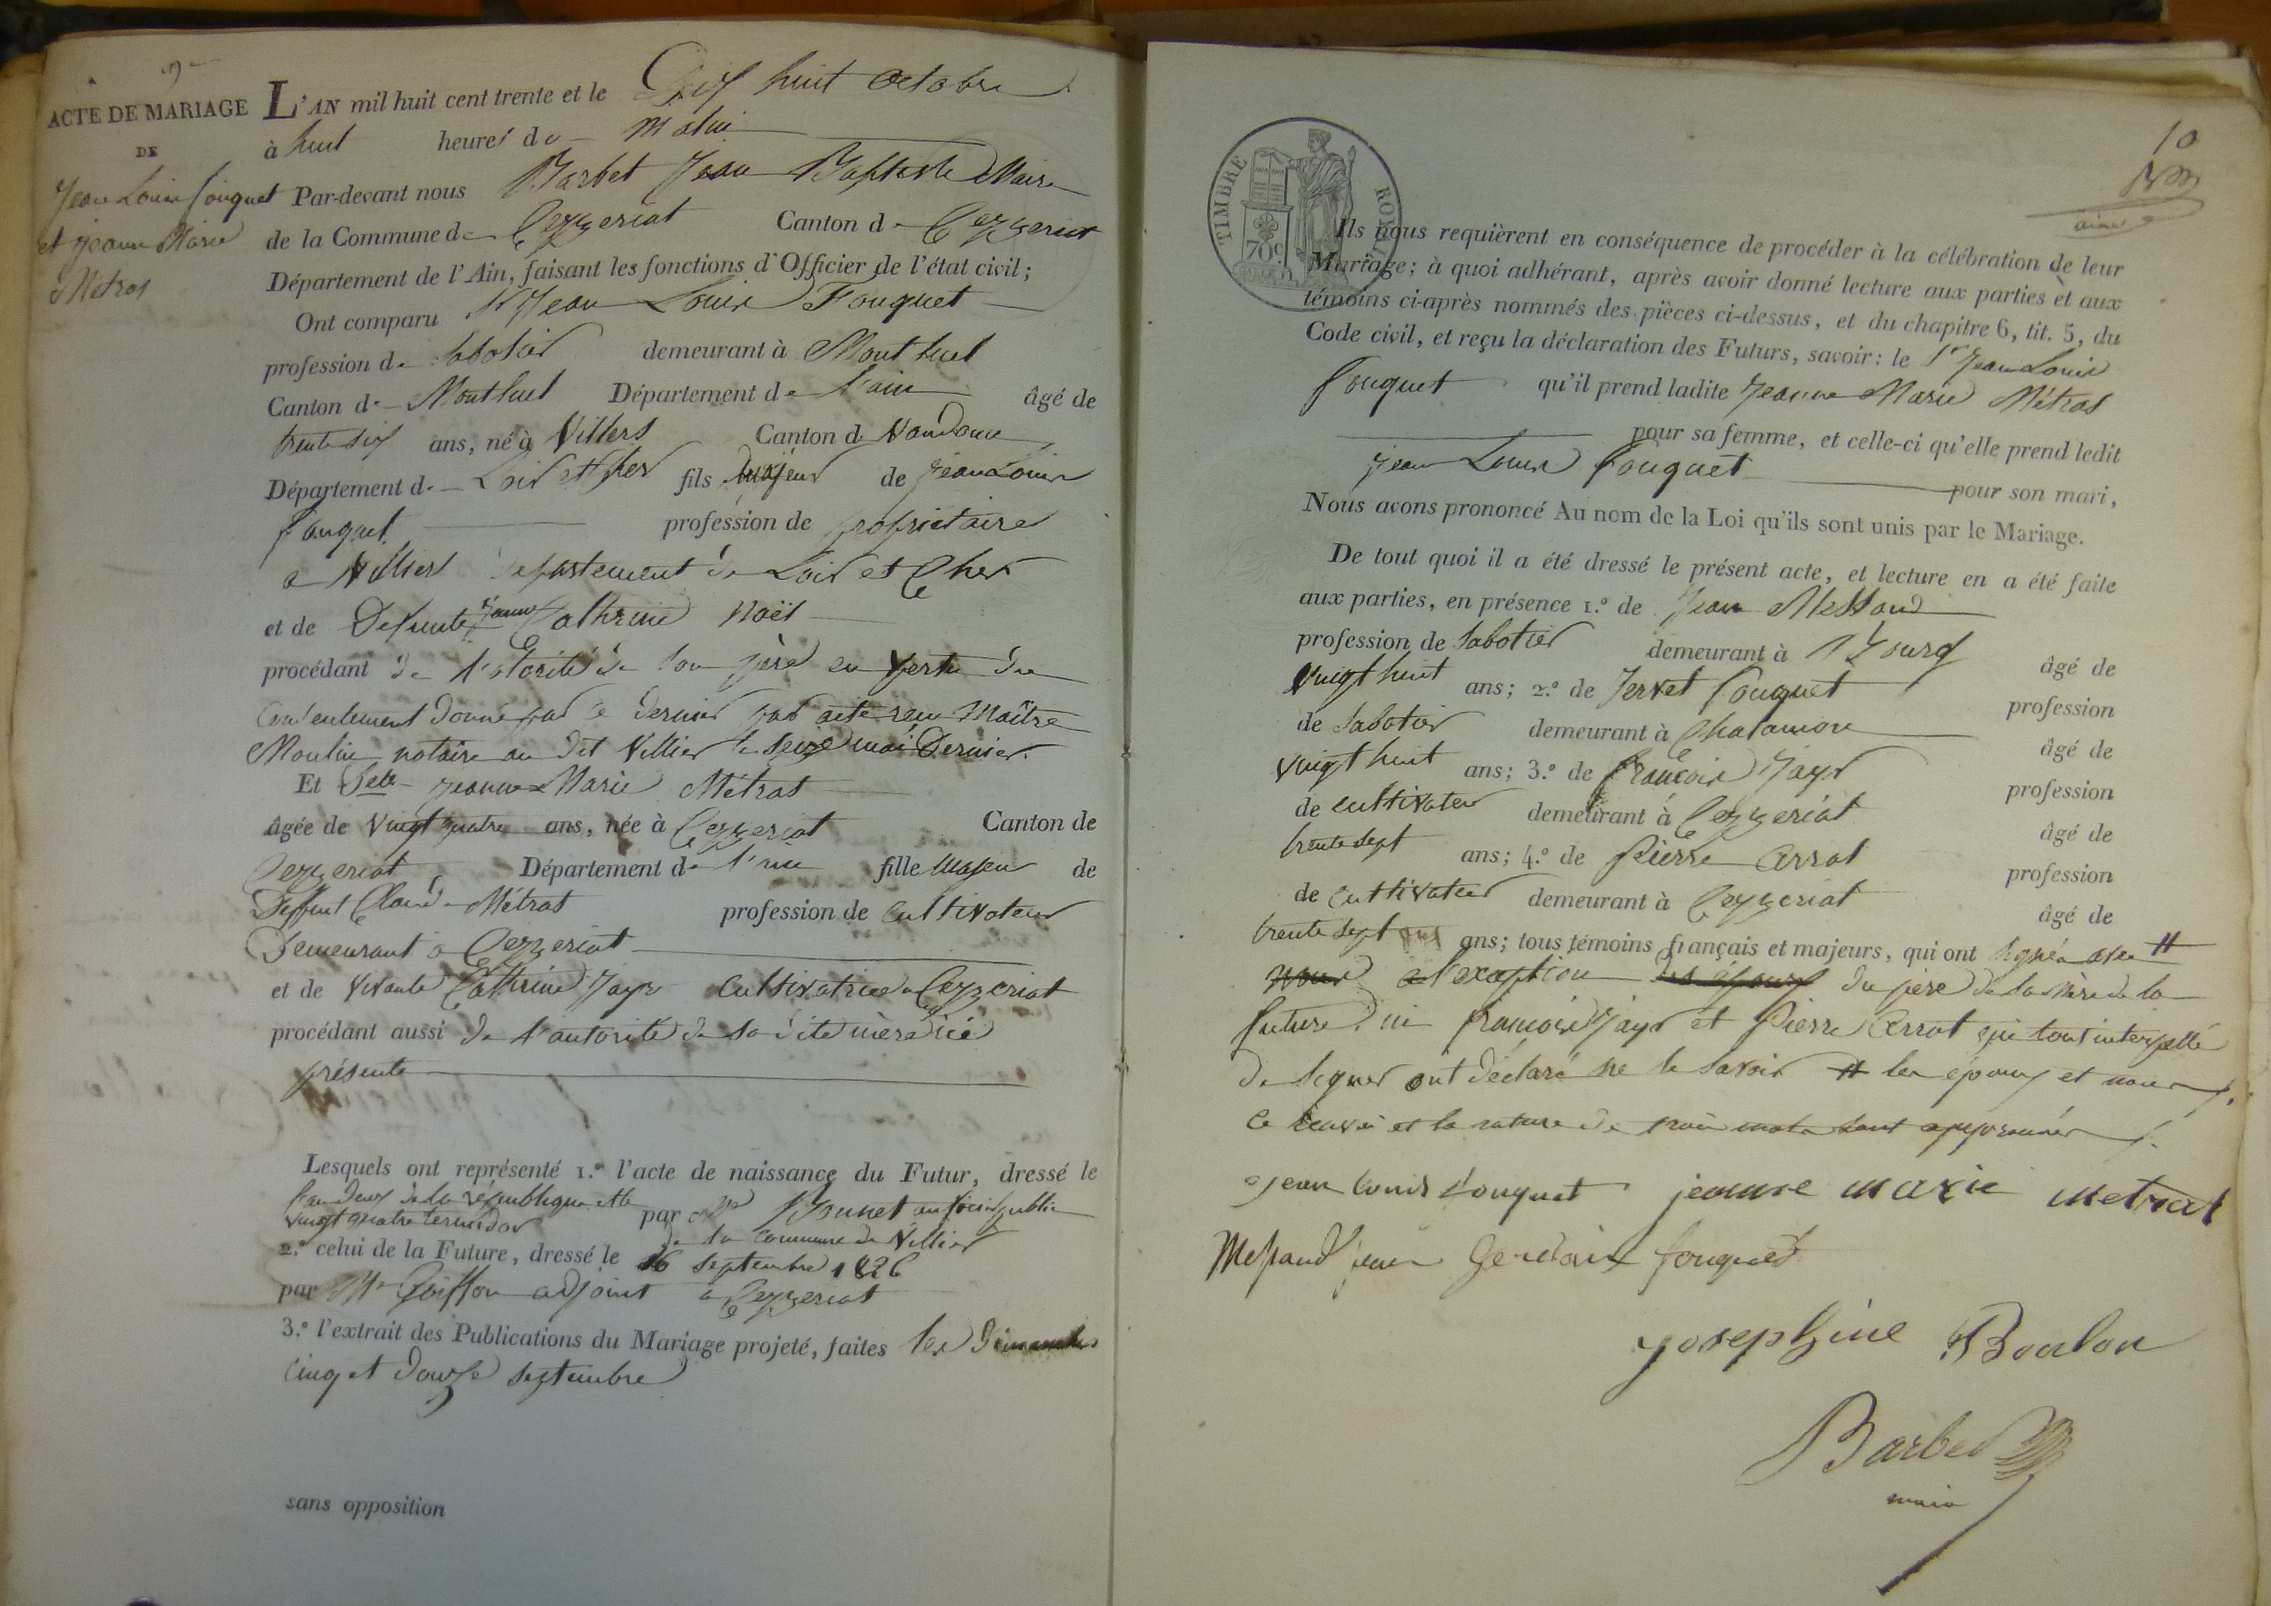 ACTE DE MARIAGE
DE
Jean Louis fouquet
et jeanne Marie
Métras
L'AN mil huit cent trente et le Dix huit octobre
à huit heures du matin
Par-devant nous Barbet Jean Baptiste Maire
de la Commune de Ceyzeriat Canton de Ceyzeriat
Département de l'Ain, faisant les fonctions d'Officier de l'état civil;
Ont comparu Sr Jean Louis Fouquet
profession de Sabotier demeurant à Montluel
Canton de Montluel Département de l'ain âgé de
trente six ans, né à Villiers Canton de Vandome
Département de Loir et Cher fils majeur de jean Louis
fouquet profession de propriétaire
a Villiers departement de Loir et Cher
et de Defunte jeanne Cathrine Noël
procédant de l'otorité de son père en vertu du
consentement donné par ce dernier par acte reçu Maître
Moulin notaire au dit Villier le seize mai Dernier.
Et Delle jeanne Marie Métras
âgée de vingt quatre ans, née à Ceyzeriat Canton de
Ceyzeriat Département de l'ain fille majeur de
Deffunt Claude Métras profession de cultivateur
Demeurant à Ceyzeriat
et de vivante Cathrine Jayr cultivatrice a Ceyzeriat
procédant aussi de l'autorité de sa dite mère ici
présente
Lesquels ont représenté 1.º l'acte de naissance du Futur, dressé le
l'an deux de la république et le
vingt quatre termidor par Mr Bonnet officier public
de la commune de Villier
2.º celui de la Future, dressé le 16 septembre 1826
par Mr Goiffon adjoint a Ceyzeriat
3.º l'extrait des Publications du Mariage projeté, faites les Dimanches
cinq et douze septembre
sans opposition
10
TIMBRE ROYAL
70c
Ils nous requièrent en conséquence de procéder à la célébration de leur
Mariage; à quoi adhérant, après avoir donné lecture aux parties et aux
témoins ci-après nommés des pièces ci-dessus, et du chapitre 6, tit. 5, du
Code civil, et reçu la déclaration des Futurs, savoir: le Sr Jean Louis
fouquet qu'il prend ladite Jeanne Marie Métras
pour sa femme, et celle-ci qu'elle prend ledit
jean Louis fouquet pour son mari,
Nous avons prononcé Au nom de la Loi qu'ils sont unis par le Mariage.
De tout quoi il a été dressé le présent acte, et lecture en a été faite
aux parties, en présence 1.º de Jean Messand
profession de Sabotier demeurant à Bourg âgé de
vingt huit ans; 2.º de Jervet fouquet profession
de Sabotier demeurant à Chalamont âgé de
vingt huit ans; 3.º de françois Jayr profession
de cultivateur demeurant à Ceyzeriat âgé de
trente sept ans; 4.º de Pierre Arrat profession
de cultivateur demeurant à Ceyzeriat âgé de
trente sept ans; tous témoins français et majeurs, qui ont signé avec #
nous a l'exeption des époux du père de la Mère de la
future ni françois Jayr et Pierre Arrat qui tout interpellé
de signer ont déclaré ne le savoir # les époux et nous
Ce renvoi et la rature de trois mots sont approuvés
jean louis fouquet jeanne marie metrat
Messand jean Gervais fouquet
josephine Boulon
Barbet
maire